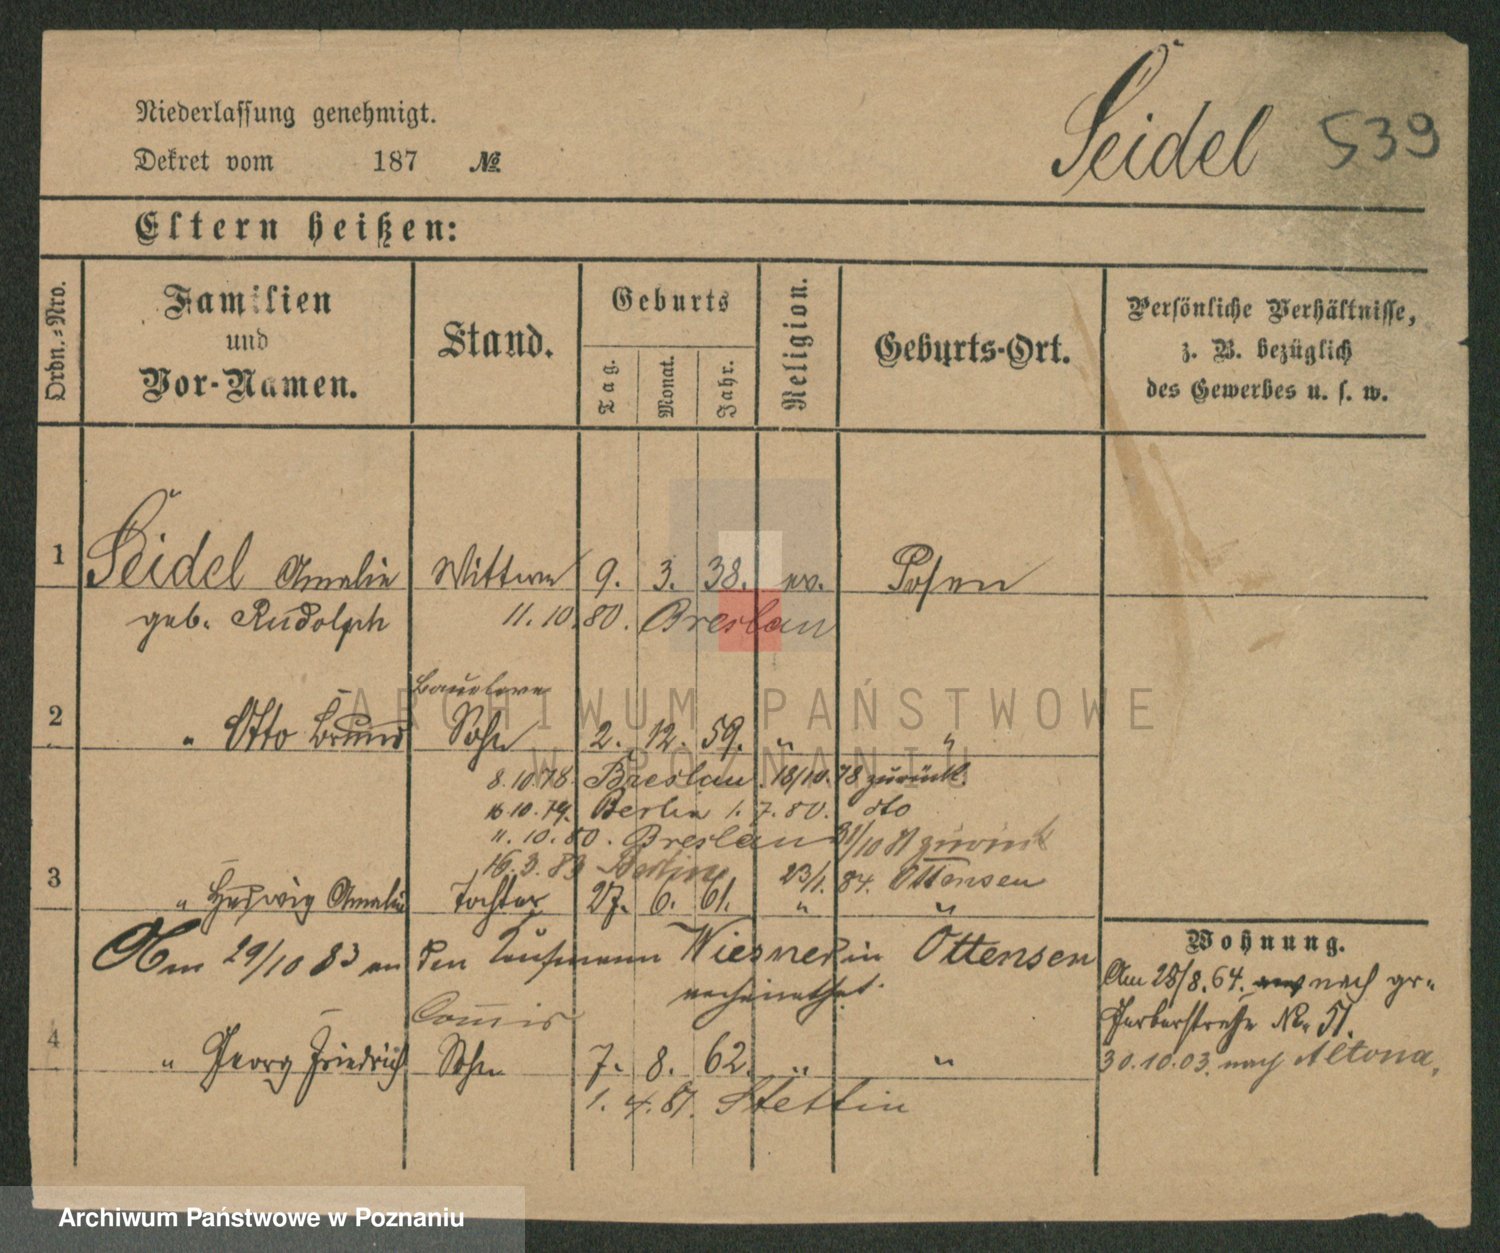 Niederlassung genehmigt.
Dekret vom 187 №
Seidel 539
Eltern heißen:
Ordn.-Nro.
Familien
und
Vor-Namen.
Stand.
Geburts
Tag.
Monat.
Jahr.
Religion.
Geburts-Ort.
Persönliche Verhältnisse,
z. B. bezüglich
des Gewerbes u. s. w.
1 Seidel Amalie Wittwe 9. 3. 38. ev. Posen
geb. Rudolph 11. 10. 80. Breslau
Baueleve
2 " Otto Bruno Sohn 2. 12. 59. " "
8. 10. 78. Breslau 18/10. 78 zurück
10. 79. Berlin 1. 7. 80. dto
11. 10. 80. Breslau 31/10 81 zurück
16. 3. 83 Berlin 23/1. 84. Ottensen
3 " Hedwig Amalie Tochter 27. 6. 61. " "
Am 29/10 83 an den Kaufmann Wiesner in Ottensen
verheirathet.
Commis
4 " Georg Friedrich Sohn 7. 8. 62. " "
1. 4. 81. Stettin
Wohnung.
Am 28/8. 64. nach gr.
Gerberstraße No. 51.
30. 10. 03. nach Altona.
ARCHIWUM PAŃSTWOWE
W POZNANIU
Archiwum Państwowe w Poznaniu